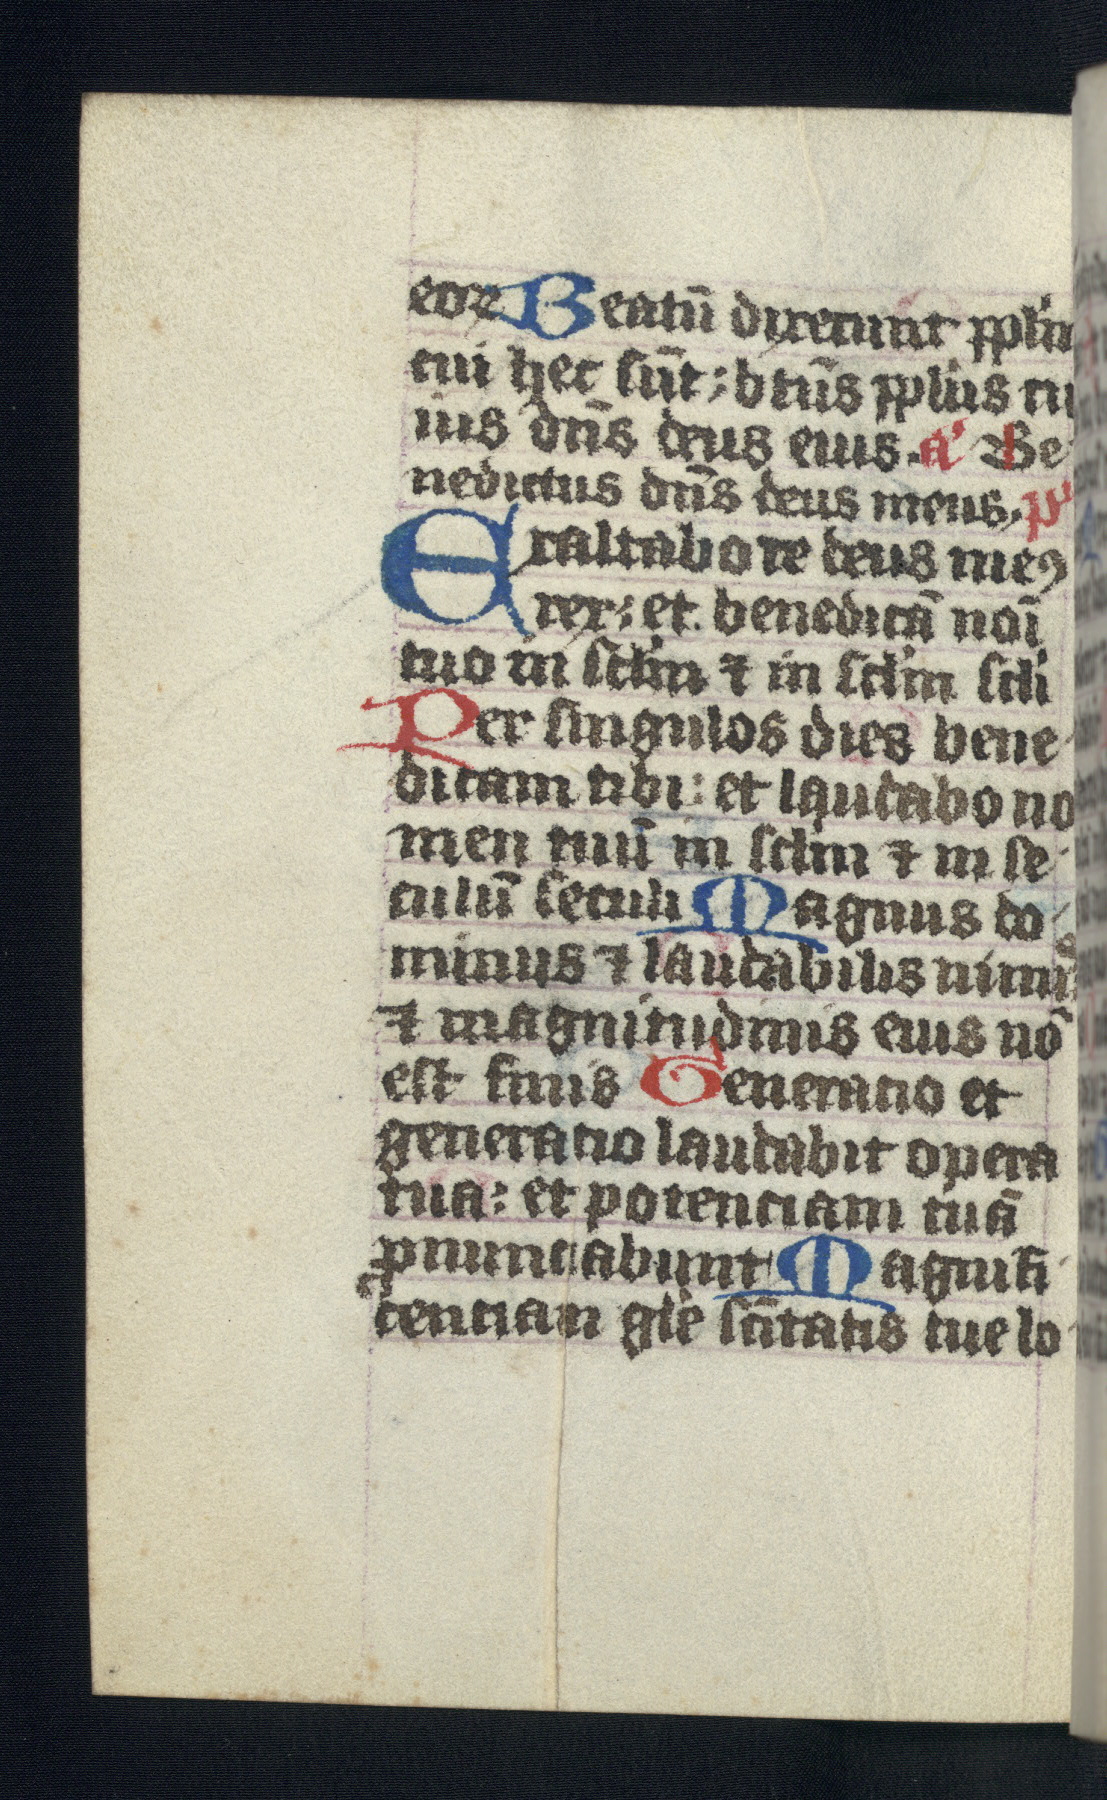 eoꝝ Beatū dixerunt ppl̄m
cui hec sūt: btūs ppl̄us cu
ius dn̄s deus eius. aͥ Be
nedictus dn̄s deus meus. pͥ
Exaltabo te deus meꝰ
rex: et benedicā noī
tuo in scl̄m ⁊ in scl̄m scl̄i
Per singulos dies bene
dicam tibi: et laudabo no
men tuū in scl̄m ⁊ in se
culū seculi Magnus do
minus ⁊ laudabilis nimis
⁊ magnitudinis eius nō
est finis Generacio et
generacio laudabit opera
tua: et potenciam tuā
ꝓnunciabunt Magnifi
cenciam glē scītatis tue lo